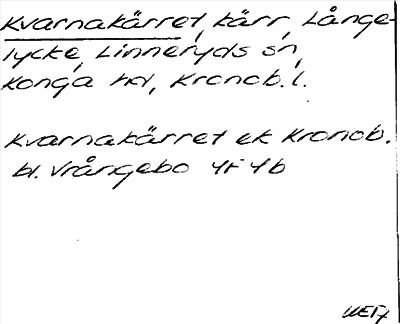 Kvarnakärret, kärr, Långe-
lycke, Linneryds sn,
Konga hd, Kronob. l.
Kvarnakärret ek Kronob.
bl. Vrångebo 4F4b